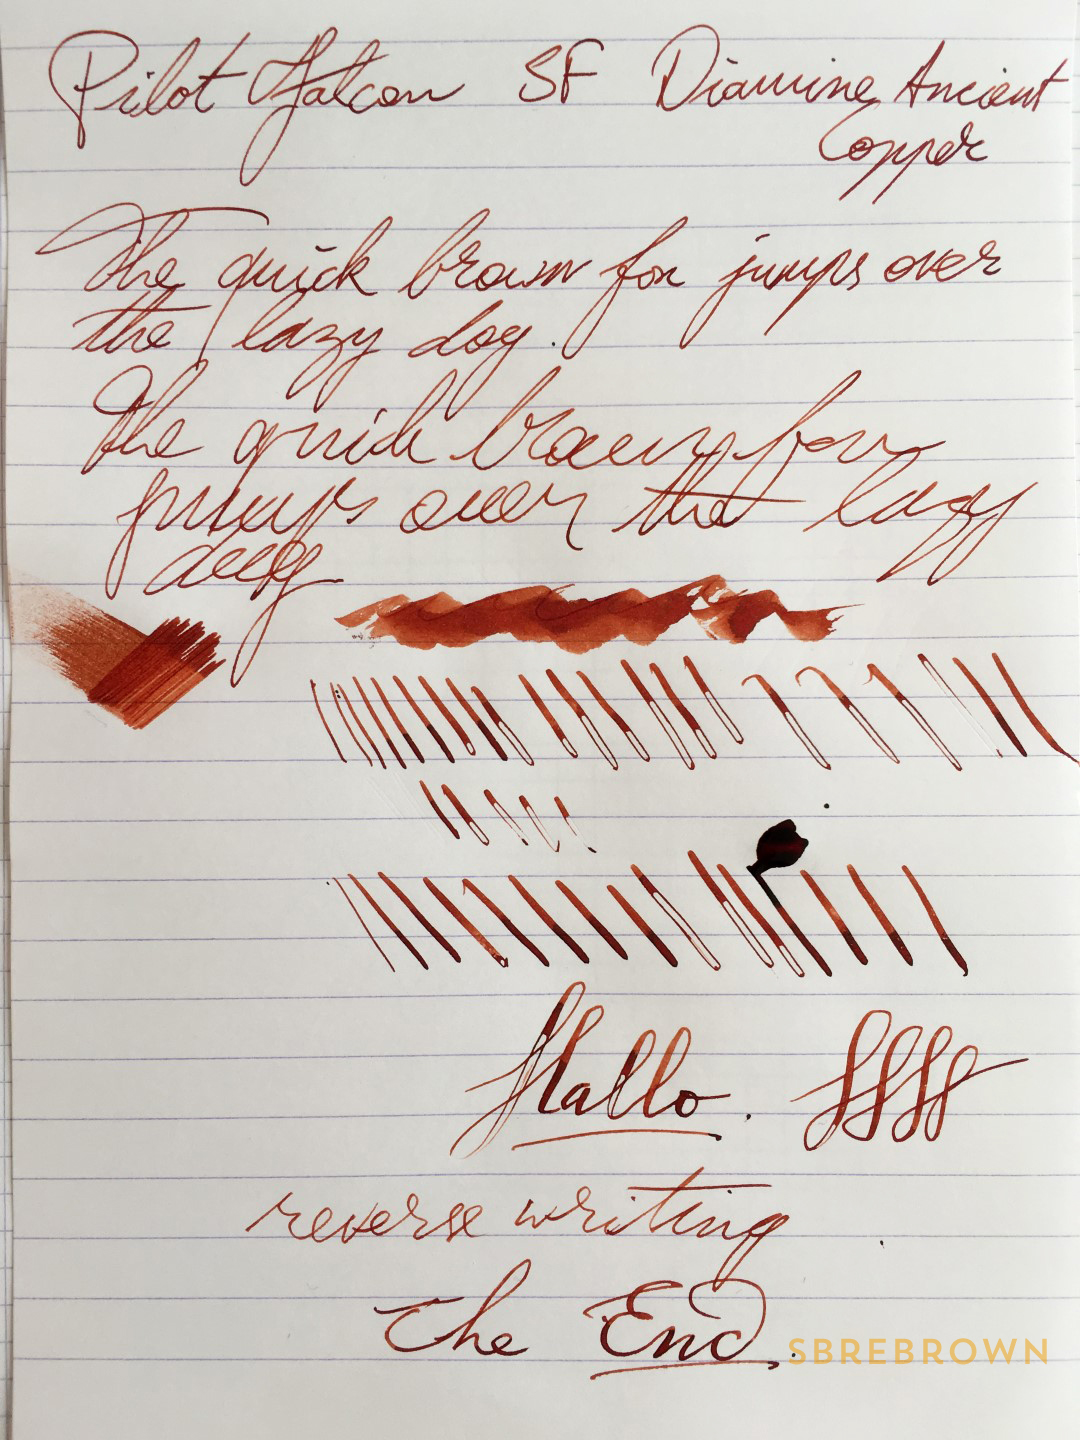 Pilot Falcon SF Diamine Ancient
Copper
The quick brown fox jumps over
the lazy dog.
The quick brown fox
jumps over the lazy
dog
Hallo. ffff
reverse writing
The End.
SBREBROWN